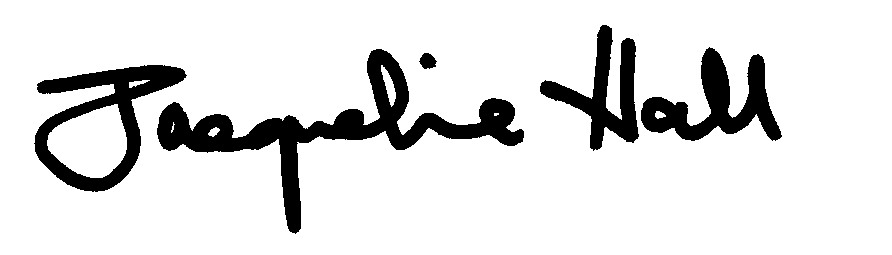 Jacqueline Hall